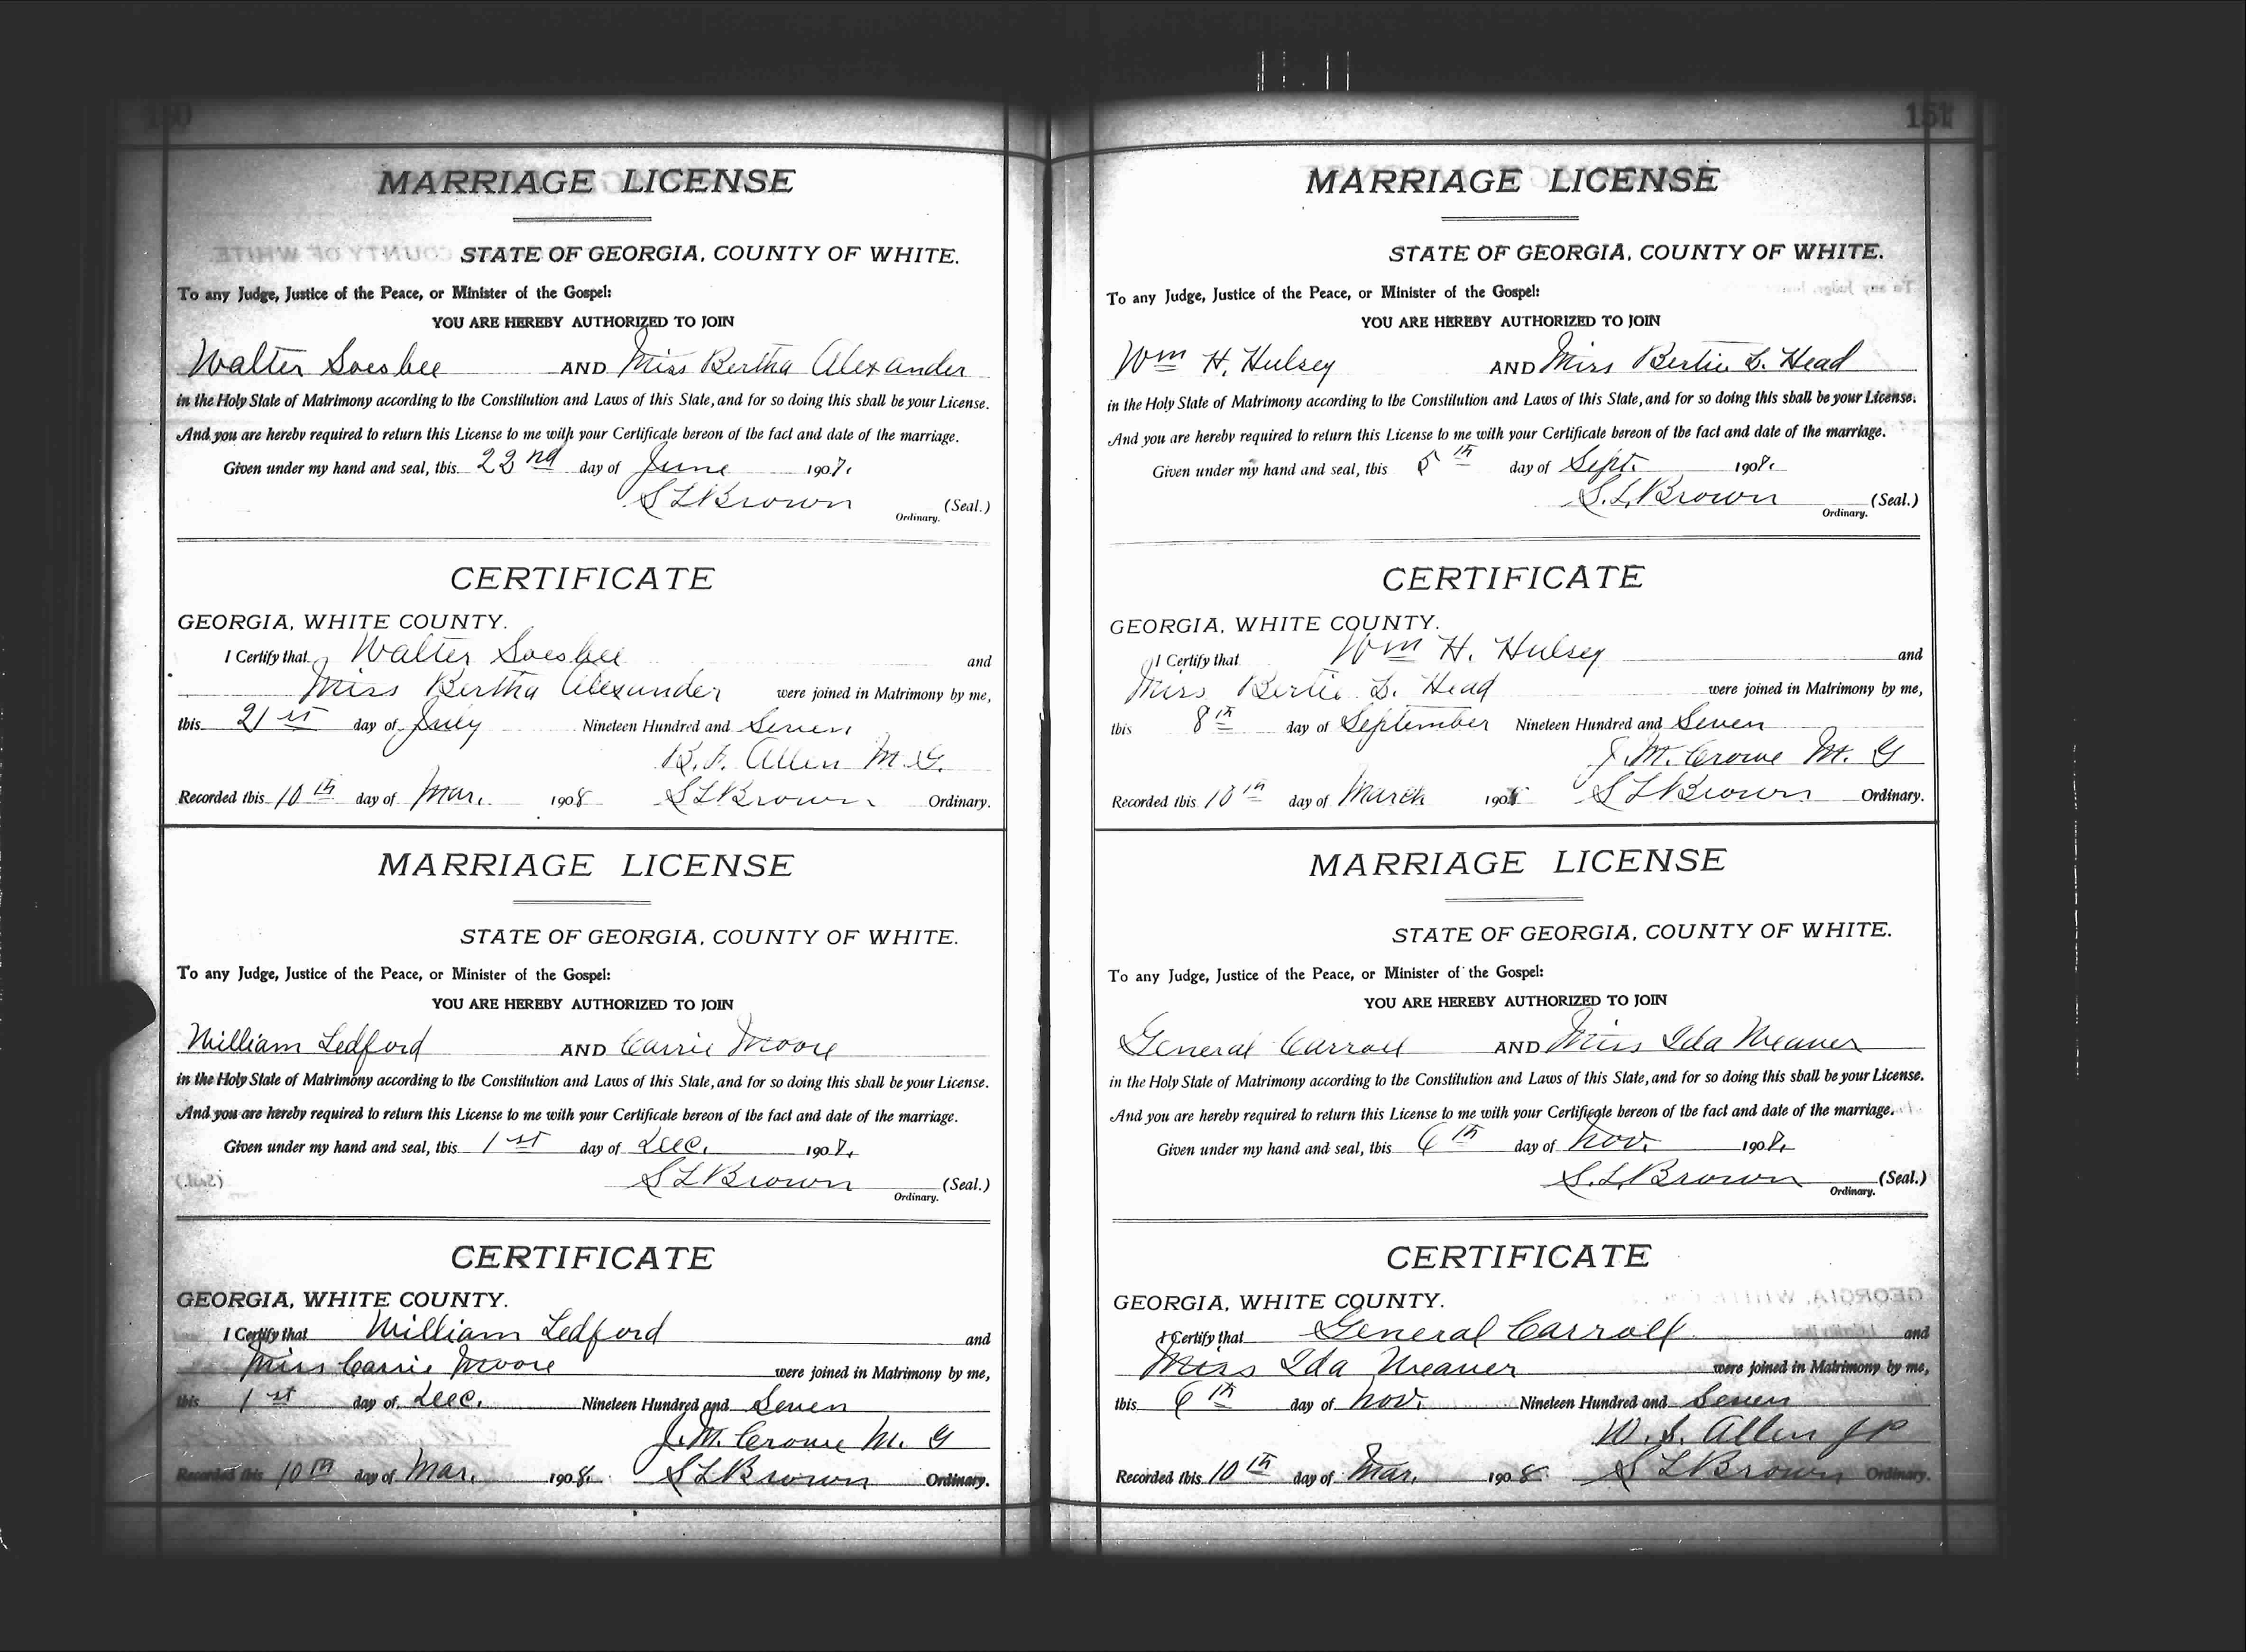 150
MARRIAGE LICENSE
STATE OF GEORGIA, COUNTY OF WHITE.
To any Judge, Justice of the Peace, or Minister of the Gospel:
YOU ARE HEREBY AUTHORIZED TO JOIN
Walter Soesbee AND Miss Bertha Alexander
in the Holy State of Matrimony according to the Constitution and Laws of this State, and for so doing this shall be your License.
And you are hereby required to return this License to me with your Certificate hereon of the fact and date of the marriage.
Given under my hand and seal, this 22nd day of June 1907.
S L Brown (Seal.)
Ordinary.
CERTIFICATE
GEORGIA, WHITE COUNTY.
I Certify that Walter Soesbee and
Miss Bertha Alexander were joined in Matrimony by me,
this 21st day of July Nineteen Hundred and Seven
B. F. Allen M. G.
Recorded this 10th day of Mar. 1908 S L Brown Ordinary.
MARRIAGE LICENSE
STATE OF GEORGIA, COUNTY OF WHITE.
To any Judge, Justice of the Peace, or Minister of the Gospel:
YOU ARE HEREBY AUTHORIZED TO JOIN
William Ledford AND Carrie Moore
in the Holy State of Matrimony according to the Constitution and Laws of this State, and for so doing this shall be your License.
And you are hereby required to return this License to me with your Certificate hereon of the fact and date of the marriage.
Given under my hand and seal, this 1st day of Dec. 1907.
S L Brown (Seal.)
Ordinary.
CERTIFICATE
GEORGIA, WHITE COUNTY.
I Certify that William Ledford and
Miss Carrie Moore were joined in Matrimony by me,
this 1st day of Dec. Nineteen Hundred and Seven
J. M. Crowe M. G
Recorded this 10th day of Mar. 1908. S L Brown Ordinary.
151
MARRIAGE LICENSE
STATE OF GEORGIA, COUNTY OF WHITE.
To any Judge, Justice of the Peace, or Minister of the Gospel:
YOU ARE HEREBY AUTHORIZED TO JOIN
Wm H. Hulsey AND Miss Bertie L. Head
in the Holy State of Matrimony according to the Constitution and Laws of this State, and for so doing this shall be your License.
And you are hereby required to return this License to me with your Certificate hereon of the fact and date of the marriage.
Given under my hand and seal, this 5th day of Sept. 1907.
S. L. Brown (Seal.)
Ordinary.
CERTIFICATE
GEORGIA, WHITE COUNTY.
I Certify that Wm H. Hulsey and
Miss Bertie L. Head were joined in Matrimony by me,
this 8th day of September Nineteen Hundred and Seven
J. M. Crowe M. G
Recorded this 10th day of March 1908 S L Brown Ordinary.
MARRIAGE LICENSE
STATE OF GEORGIA, COUNTY OF WHITE.
To any Judge, Justice of the Peace, or Minister of the Gospel:
YOU ARE HEREBY AUTHORIZED TO JOIN
General Carroll AND Miss Ida Meaner
in the Holy State of Matrimony according to the Constitution and Laws of this State, and for so doing this shall be your License.
And you are hereby required to return this License to me with your Certificate hereon of the fact and date of the marriage.
Given under my hand and seal, this 6th day of Nov. 1907.
S. L. Brown (Seal.)
Ordinary.
CERTIFICATE
GEORGIA, WHITE COUNTY.
I Certify that General Carroll and
Miss Ida Meaner were joined in Matrimony by me,
this 6th day of Nov. Nineteen Hundred and Seven
W. S. Allen JP
Recorded this 10th day of Mar. 1908 S L Brown Ordinary.